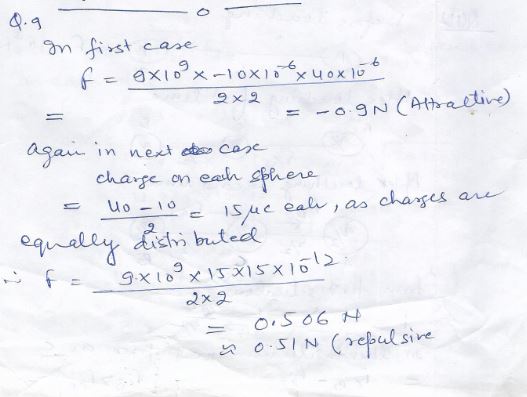 Q.9
In first case
f = 9x10⁹ x -10x10⁻⁶ x 40x10⁻⁶
2x2
=
= -0.9N (Attractive)
Again in next case
charge on each sphere
= 40 - 10 = 15μc each, as charges are
2
equally distributed
∴ f = 9x10⁹ x 15x15x10⁻¹²
2x2
= 0.506 N
≈ 0.51N (repulsive